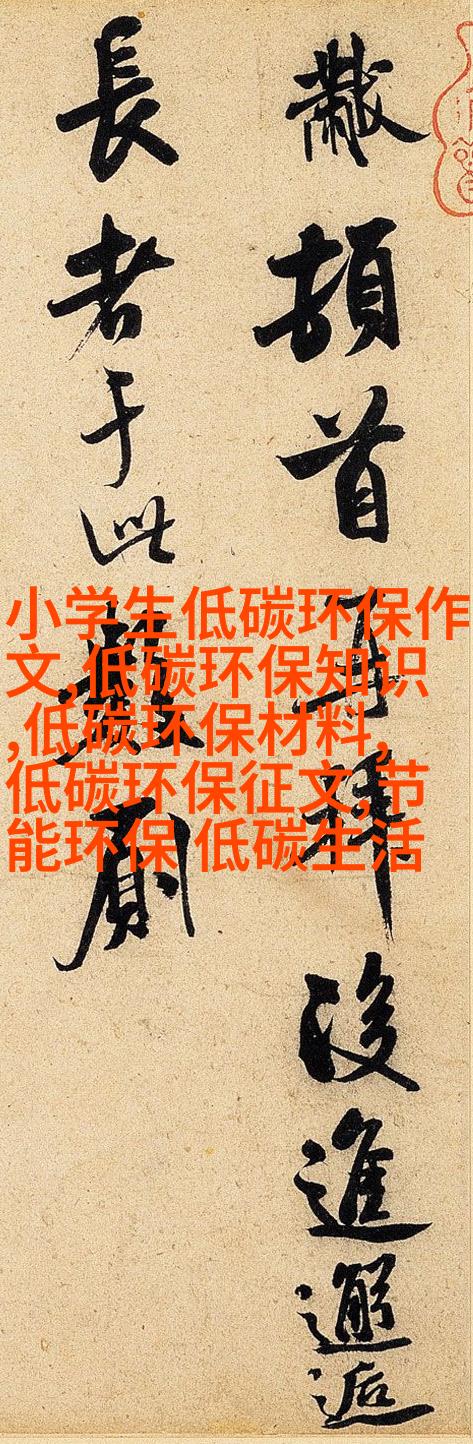 黻頓首再拜後進邂逅
長者于此數厠
小学生低碳环保作
文,低碳环保知识
,低碳环保材料,
低碳环保征文,节
能环保 低碳生活